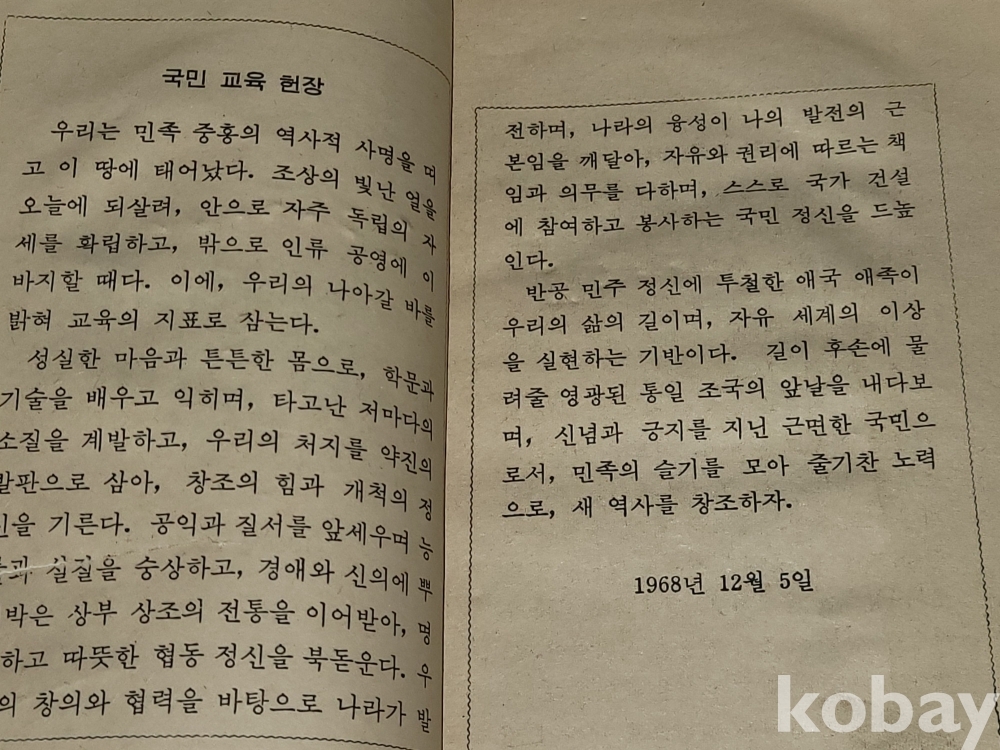 국민 교육 헌장
우리는 민족 중흥의 역사적 사명을 띠
고 이 땅에 태어났다. 조상의 빛난 얼을
오늘에 되살려, 안으로 자주 독립의 자
세를 확립하고, 밖으로 인류 공영에 이
바지할 때다. 이에, 우리의 나아갈 바를
밝혀 교육의 지표로 삼는다.
성실한 마음과 튼튼한 몸으로, 학문과
기술을 배우고 익히며, 타고난 저마다의
소질을 계발하고, 우리의 처지를 약진의
발판으로 삼아, 창조의 힘과 개척의 정
신을 기른다. 공익과 질서를 앞세우며 능
실질을 숭상하고, 경애와 신의에 뿌
박은 상부 상조의 전통을 이어받아, 명
하고 따뜻한 협동 정신을 북돋운다. 우
의 창의와 협력을 바탕으로 나라가 발
전하며, 나라의 융성이 나의 발전의 근
본임을 깨달아, 자유와 권리에 따르는 책
임과 의무를 다하며, 스스로 국가 건설
에 참여하고 봉사하는 국민 정신을 드높
인다.
반공 민주 정신에 투철한 애국 애족이
우리의 삶의 길이며, 자유 세계의 이상
을 실현하는 기반이다. 길이 후손에 물
려줄 영광된 통일 조국의 앞날을 내다보
며, 신념과 긍지를 지닌 근면한 국민으
로서, 민족의 슬기를 모아 줄기찬 노력
으로, 새 역사를 창조하자.
1968년 12월 5일
kobay